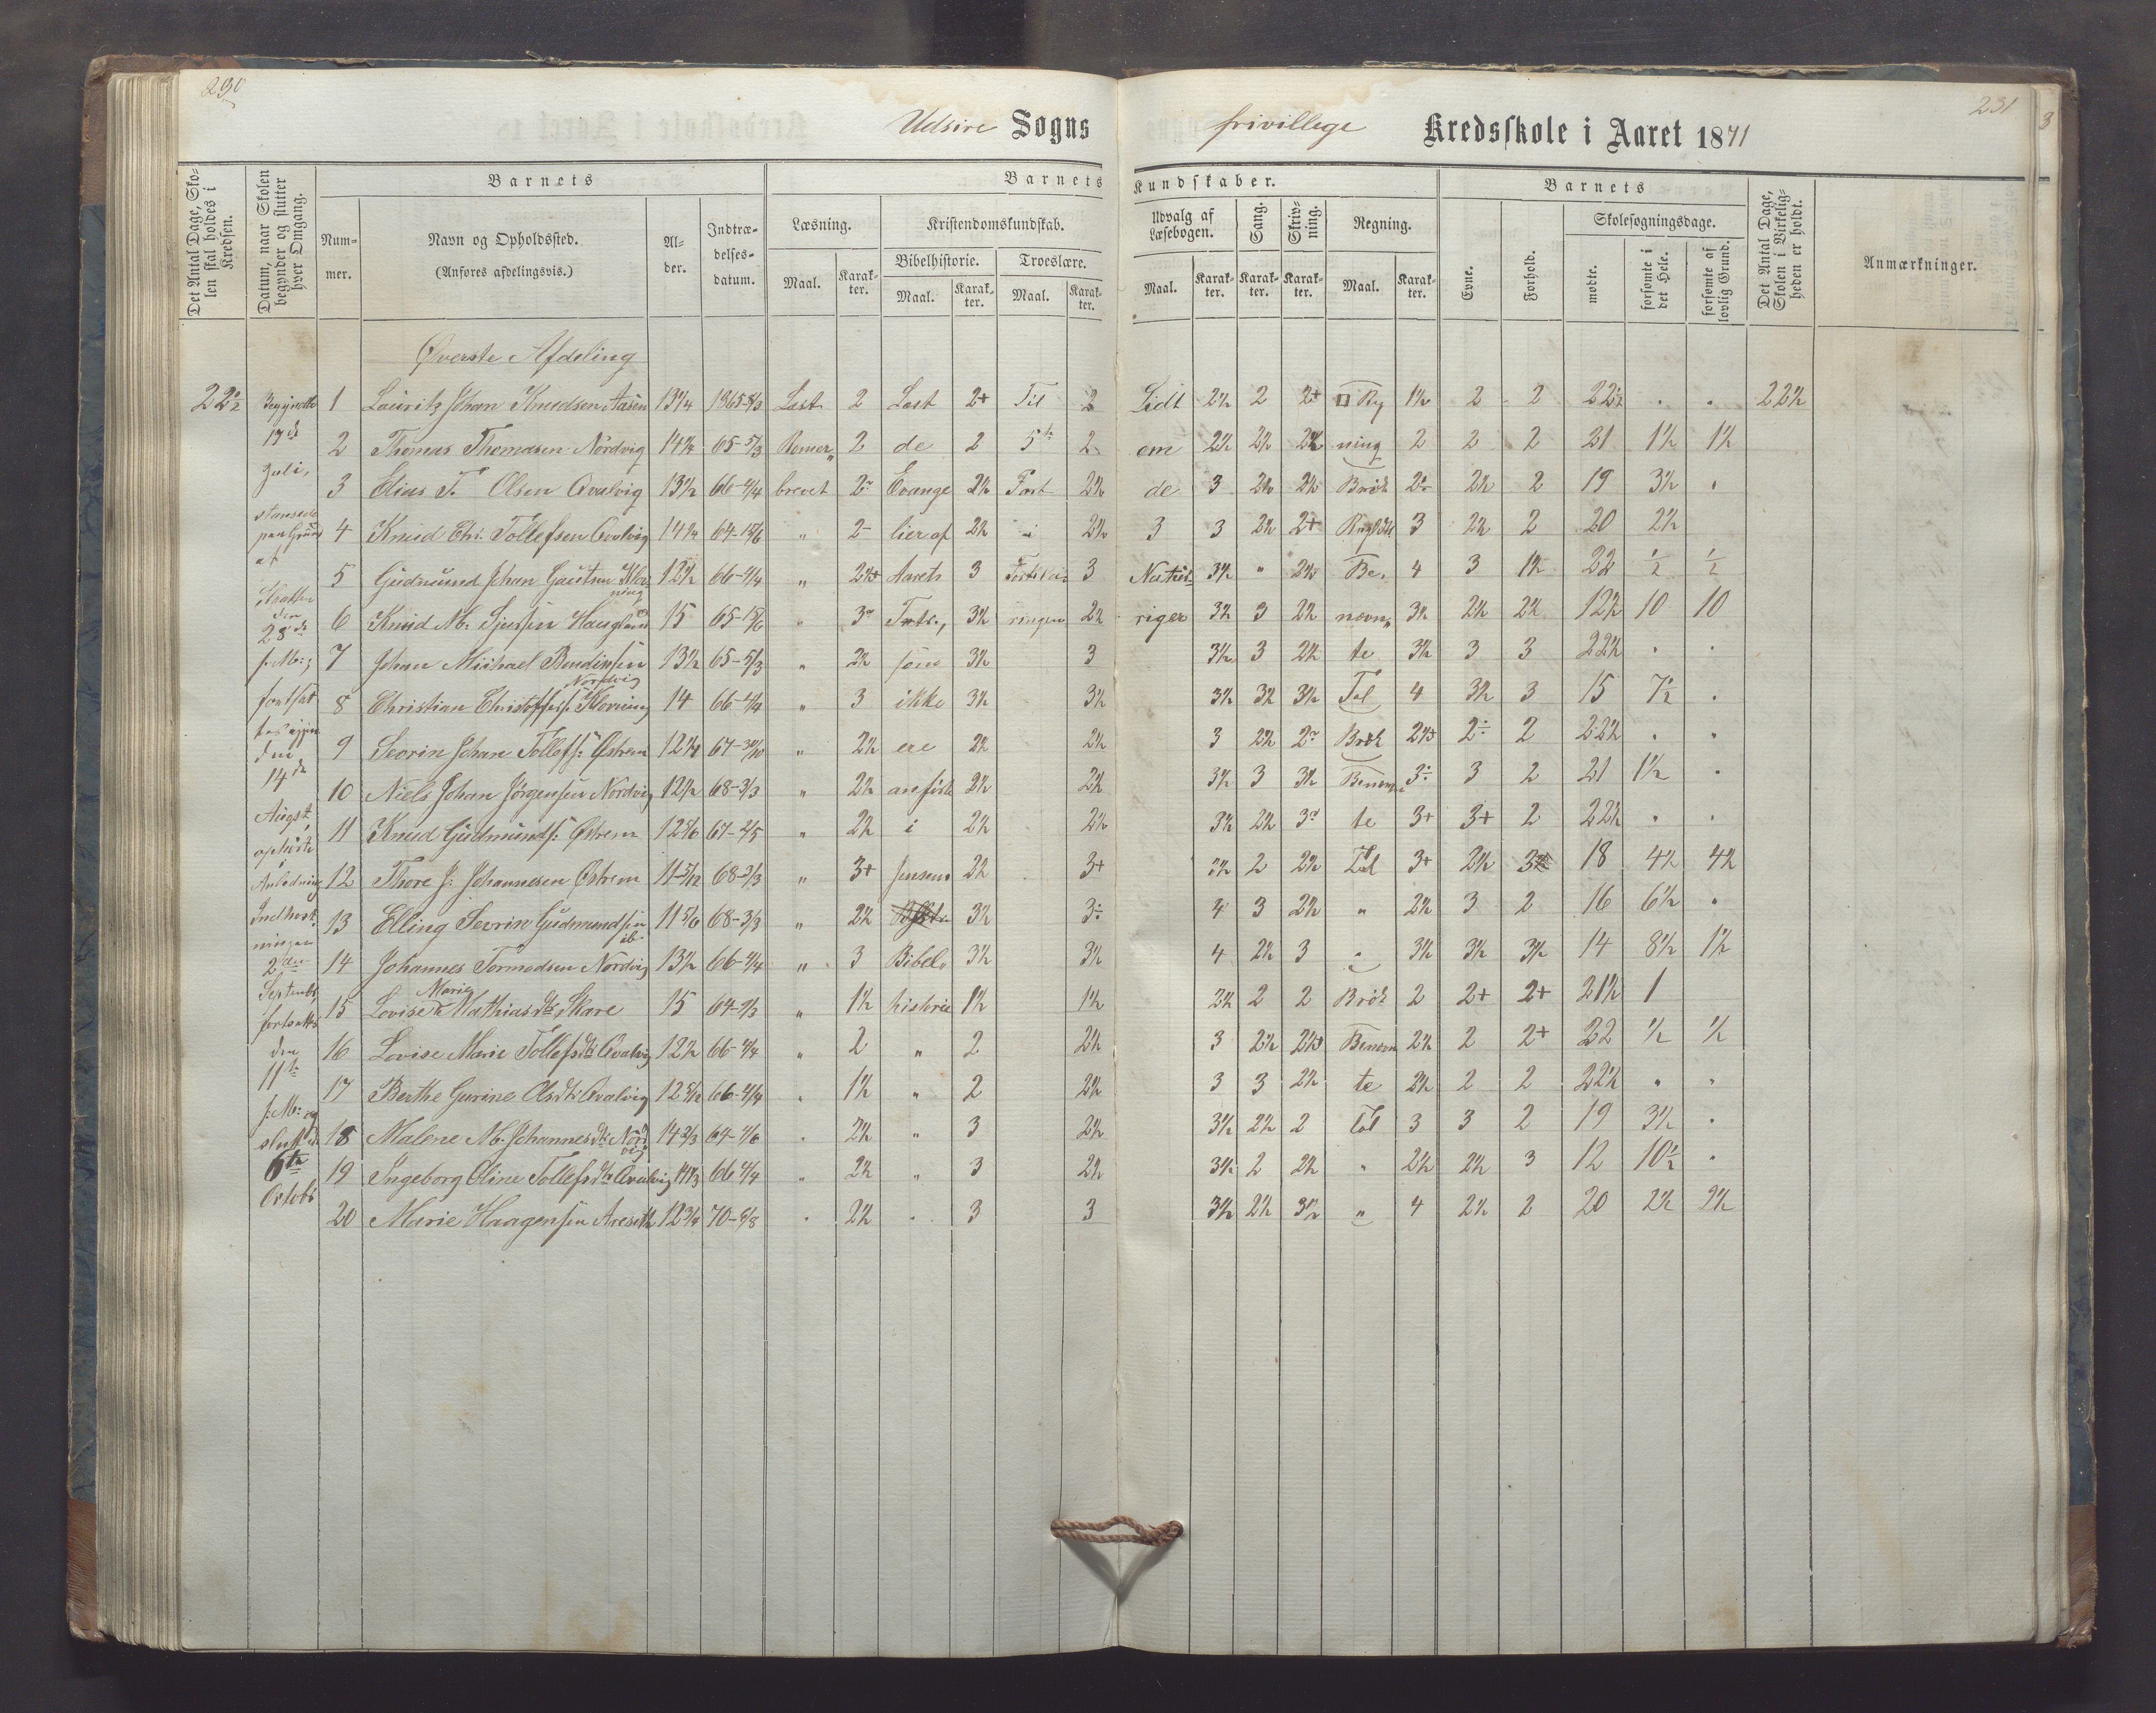 230
231
Udsire Sogns frivillege Kredsskole i Aaret 1871
Det Antal Dage, Skolen skal holdes i Kredsen.
Datum, naar Skolen begynder og slutter hver Omgang.
Barnets
Barnets Kundskaber.
Barnets
Det Antal Dage, Skolen i Virkeligheden er holdt.
Anmærkninger.
Nummer.
Navn og Opholdssted.
(Anføres afdelingsvis.)
Alder.
Indtrædelsesdatum.
Læsning.
Kristendomskundskab.
Udvalg af Læsebogen.
Sang.
Skrivning.
Regning.
Evne.
Forhold.
Skolesøgningsdage.
Bibelhistorie.
Troeslære.
Maal. Karakter. Maal. Karakter. Maal. Karakter. Maal. Karakter. Karakter. Karakter. Maal. Karakter.
mødte. forsømte i det Hele. forsømte af lovlig Grund.
Øverste Afdeling
22½ Begyndte 1 Lauritz Johan Knudsen Aasen 13¼ 1865-5/3 Læst 2 Læst 2+ Til 2 Lidt 2½ 2 2+ □ Rg 1½ 2 2 22½ . . 22½
17de 2 Thomas Thomasen Nordvig 14¼ 65-5/3 Romer„ 2 de 2 5te 2 om 2½ 2½ 2½ ning 2 2 2 21 1½ 1½
Juli, 3 Elias T. Olsen Qvalvig 13½ 66-4/4 brevet 2 Evange 2½ Part 2½ de 3 2½ 2½ Brøk 2 2½ 2 19 3½ .
4 Knud Chr. Tollefsen Qvalvig 14¼ 64-15/6 „ 2- lier af 2½ i 2½ 3 3 2½ 2+ 3 2½ 2 20 2½
af 5 Gudmund Johan Gautsen Klovning 12½ 66-4/4 „ 2½ Aarets 3 Forkla 3 Natur 3½ „ 2½ Be. 4 3 1½ 22 ½ ½
den 28de 6 Knud M. Sjursen Haugland 15 65-15/6 „ 3 3½ ringen 2½ riger 3½ 3 2½ nævn„ 3½ 2½ 2½ 12½ 10 10
s. M.; 7 Johan Michael Bendiksen Nordvig 13½ 65-5/3 „ 2½ som 3½ 3 3½ 3 2½ te 3½ 3 3 22½ . .
fortsat 8 Christian Christoffers. Klovning 14 66-4/4 „ 3 ikke 3½ 3½ 3½ 3½ 3½ Tal 4 3½ 3 15 7½ .
den 9 Sevrin Johan Tollefs: Østrem 12¼ 67-30/10 „ 2½ ere 2½ 2½ 3 2½ 2 Brøk 2½ 2 2 22½ . .
14de 10 Niels Johan Jørgensen Nordvig 12½ 68-3/3 „ 2½ anførte 2½ 2½ 3½ 3 3½ Benævn 3 3 2 21 1½ .
Augst 11 Knud Gudmunds: Østrem 12 5/6 67-2/5 „ 2½ i 2½ 2½ 3½ 2½ 3 te 3+ 3+ 2 22½ . .
ophørte i Anledning 12 Thore J: Johannesen Østrem 11 5/12 68-3/3 „ 3+ Jensens 2½ 3+ 3½ 2 2½ Tal 3+ 2½ 3 18 4½ 4½
Indhøstningen 13 Elling Sevrin Gudmundsen ib. 11 5/6 68-3/3 „ 2½ 3½ 3 4 3 2½ „ 2½ 3 2 16 6½ .
2den 14 Johannes Tormodsen Nordvig 13½ 66-4/4 „ 3 Bibel„ 3½ 3½ 4 2½ 3 „ 3½ 3½ 3½ 14 8½ 1½
Septembr fortsattes 15 Lovise Marie Mathiasdtr. Skare 15 64-2/3 „ 1½ historie 1½ 1½ 2½ 2 2 Brøk 2 2+ 2+ 21½ 1
den 16 Lovise Marie Tollefsdtr. Qvalvig 12½ 66-4/4 „ 2 „ 2 2½ 3 2½ 2½ Benævn 2½ 2 2+ 22 ½ ½
11te 17 Berthe Gurine Olsdtr. Qvalvig 12 5/12 66-4/4 „ 1½ „ 2 2½ 3 3 2½ te 2½ 2 2 22½ „ „
s: M: og sluttet 18 Malene M. Johannesdtr. Nordvig 14 2/3 64-4/6 „ 2½ „ 3 2½ 3½ 2½ 2 Tal 3 3 2 19 3½ .
6te 19 Ingeborg Oline Tollefsdtr. Qvalvig 14 1/3 66 4/4 „ 2½ „ 3 2½ 3½ 2 2½ „ 2½ 2½ 3 12 10½ .
Octobr 20 Marie Haagensen 12¾ 70-8/8 „ 2½ „ 3 3 3½ 2½ 3½ „ 4 2½ 2 20 2½ 2½